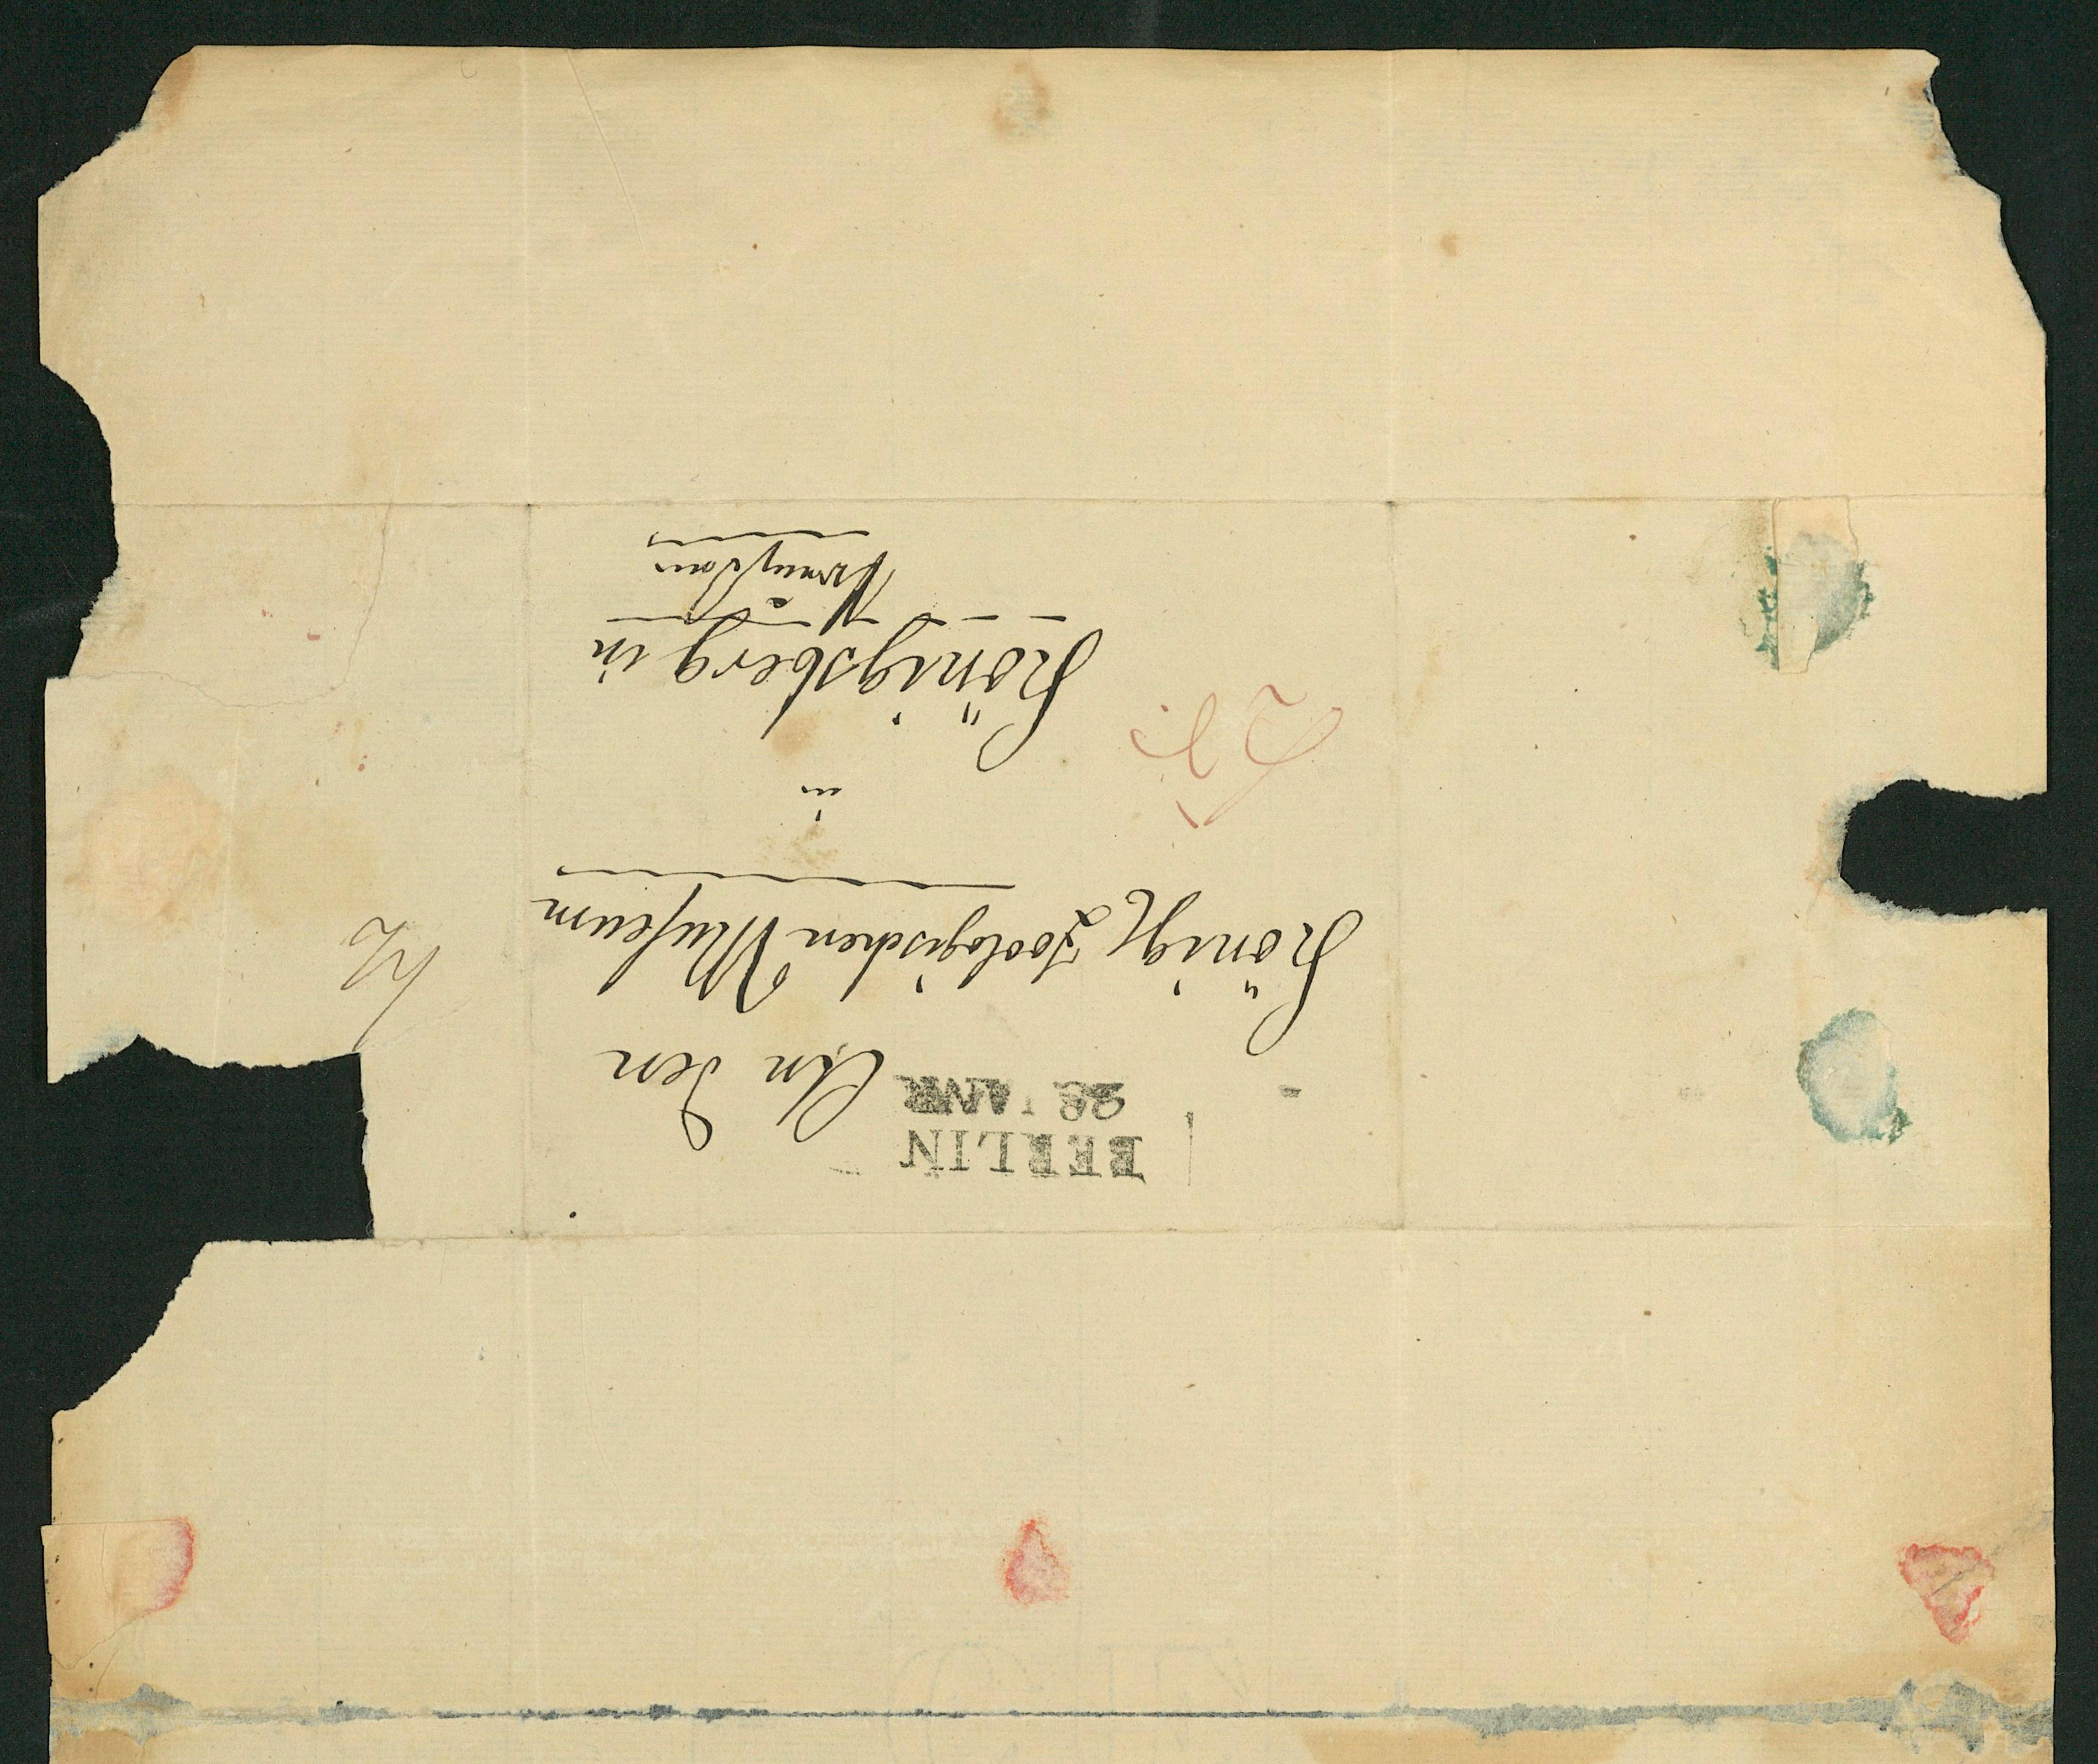 BERLIN
28 JANR
An den
Königl Zoologischen Museum
in
Königsberg in
Preussen